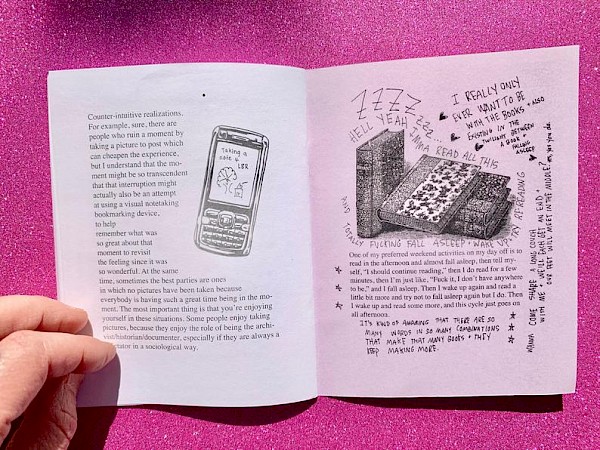 Counter-intuitive realizations.
For example, sure, there are
people who ruin a moment by
taking a picture to post which
can cheapen the experience,
but I understand that the mo-
ment might be so transcendent
that that interruption might
actually also be an attempt
at using a visual notetaking
bookmarking device,
to help
remember what was
so great about that
moment to revisit
the feeling since it was
so wonderful. At the same
time, sometimes the best parties are ones
in which no pictures have been taken because
everybody is having such a great time being in the mo-
ment. The most important thing is that you're enjoying
yourself in these situations. Some people enjoy taking
pictures, because they enjoy the role of being the archi-
vist/historian/documenter, especially if they are always a
in a sociological way.
Taking a
note 4
LBR
ZZZZ
zzz...
HELL YEAH
I'MMA READ ALL THIS
I REALLY ONLY
EVER WANT TO BE
WITH THE BOOKS + ALSO
EXISTING IN THE
TWILIGHT BETWEEN
A BOOK +
FALLING
ASLEEP
TOTALLY FUCKING FALL ASLEEP + WAKE UP + TRY RE-READING
One of my preferred weekend activities on my day off is to
read in the afternoon and almost fall asleep, then tell my-
self, "I should continue reading," then I do for a few
minutes, then I'm just like, "Fuck it, I don't have anywhere
to be," and I fall asleep. Then I wake up again and read a
little bit more and try not to fall asleep again but I do. Then
I wake up and read some more, and this cycle just goes on
all afternoon.
IT'S KIND OF AMAZING THAT THERE ARE SO
MANY WORDS IN SO MANY COMBINATIONS
THAT MAKE THAT MANY BOOKS + THEY
KEEP MAKING MORE.
WANNA COME SHARE A LONG COUCH
WITH ME. WE'LL EACH GET AN END +
OUR FEET WILL MEET IN THE MIDDLE?